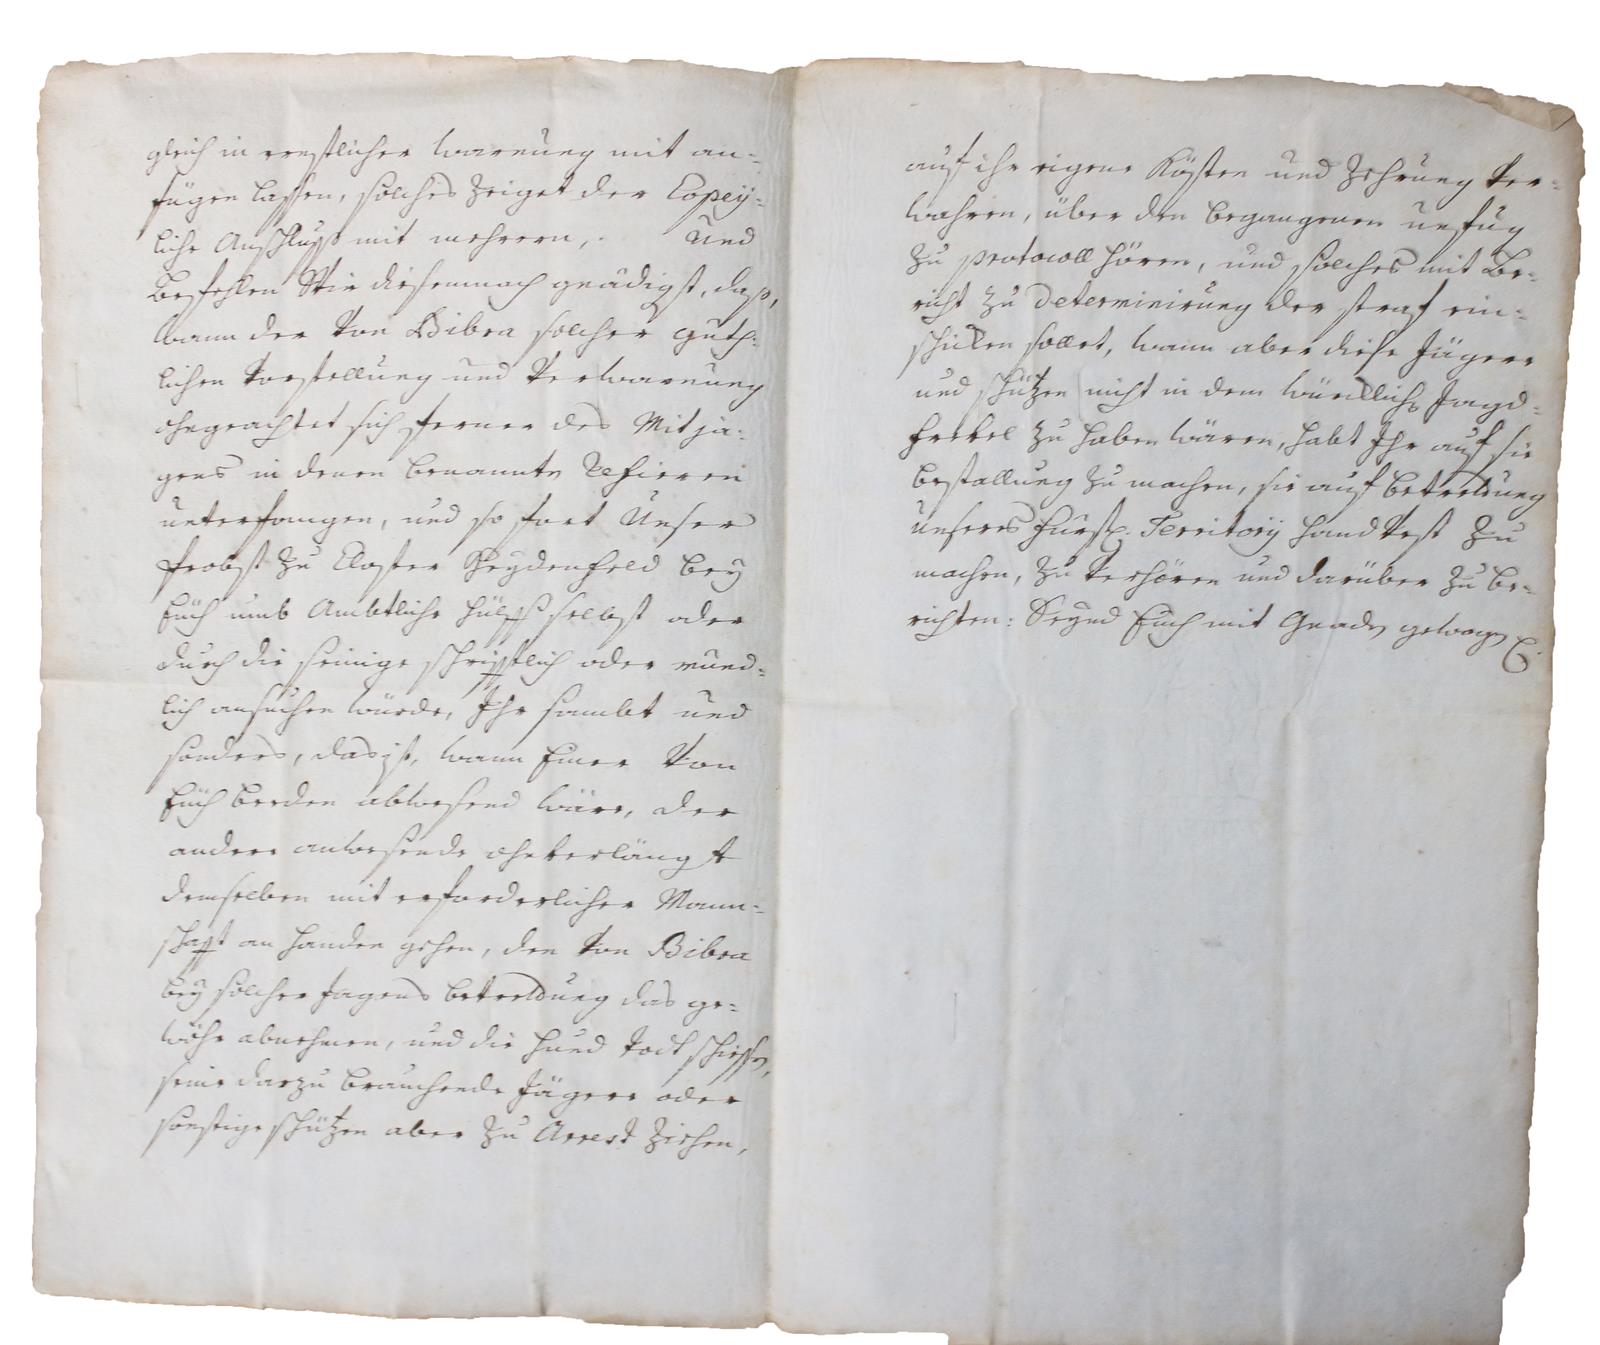 gleich in ernstlicher warnung mit an=
fügen lassen, solches zeiget der Copey=
liche Anschluß mit mehrern, und
Befehlen Wir diesemnach gnädigst, daß,
wann der von Bibra solcher güth=
lichen vorstellung und verwarnung
ohngeachtet sich ferner des Mitja=
gens in denen benannte Refieren
unterfangen, und so fort Unser
Probst zu Closter Weydenfeld bey
Euch umb Ambtliche hülff selbst oder
durch die seinige schrifftlich oder münd=
lich ansuchen würde, Ihr sambt und
sonders, das ist, wann Einer von
Euch beeden abwesend wäre, der
andere anwesende ohnverlängt
demselben mit erforderlicher Mann=
schafft an handen gehen, den von Bibra
bey solcher Jagens betrettung das ge=
wöhr abnehmen, und die hund todt schiessen,
seine darzu brauchende Jägere oder
sonstige schützen aber zu Arrest ziehen,
auf ihr eigene Kösten und Zehrung ver=
wahren, über den begangenen unfug
zu protocoll hören, und solches mit Be=
richt zu Determinirung der straf ein=
schicken sollet, wann aber diese Jägere
und schützen nicht in dem würcklichen Jagd=
frevel zu haben wären, habt Ihr auf sie
bestallung zu machen, sie auf betrettung
unseres Fürstl. Territorij handvest zu
machen, zu verhören und darüber zu be=
richten: Seynd Euch mit Gnaden gewogen